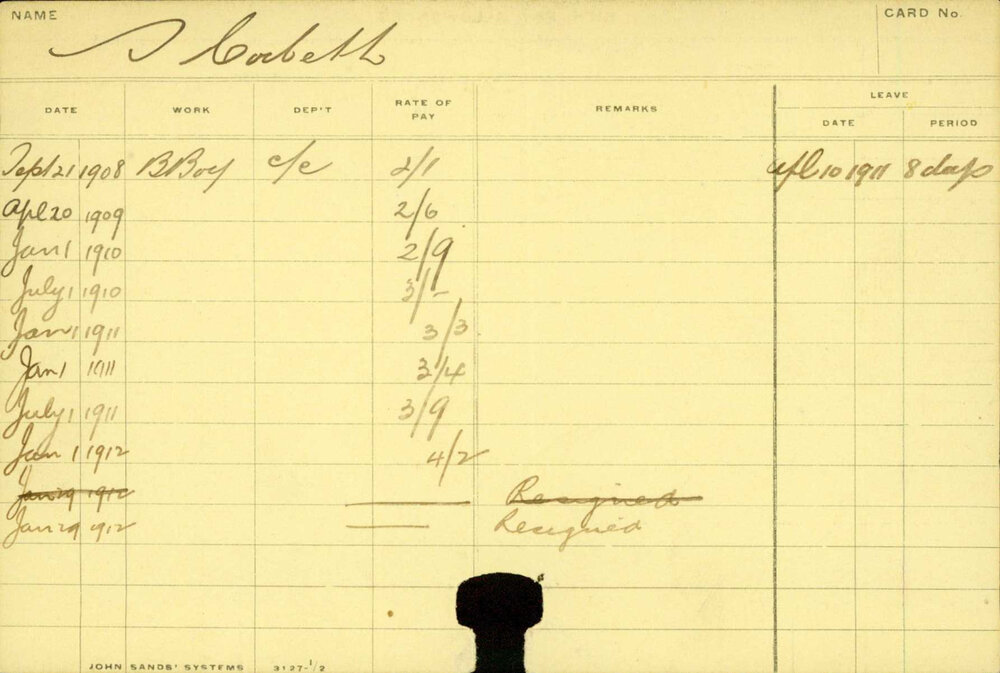 NAME CARD No.
Corbeth
LEAVE
DATE WORK DEP'T RATE OF PAY REMARKS DATE PERIOD
Sept 21 1908 B Boy c/e 2/1 Apl 10 1911 8 days
Apl 20 1909 2/6
Jan 1 1910 2/9
July 1 1910 3/-
Jan 1 1911 3/3
Jan 1 1911 3/4
July 1 1911 3/9
Jan 1 1912 4/2
Jan 29 1912 —— Resigned
Jan 29 1912 —— Resigned
JOHN SANDS' SYSTEMS 3127-1/2